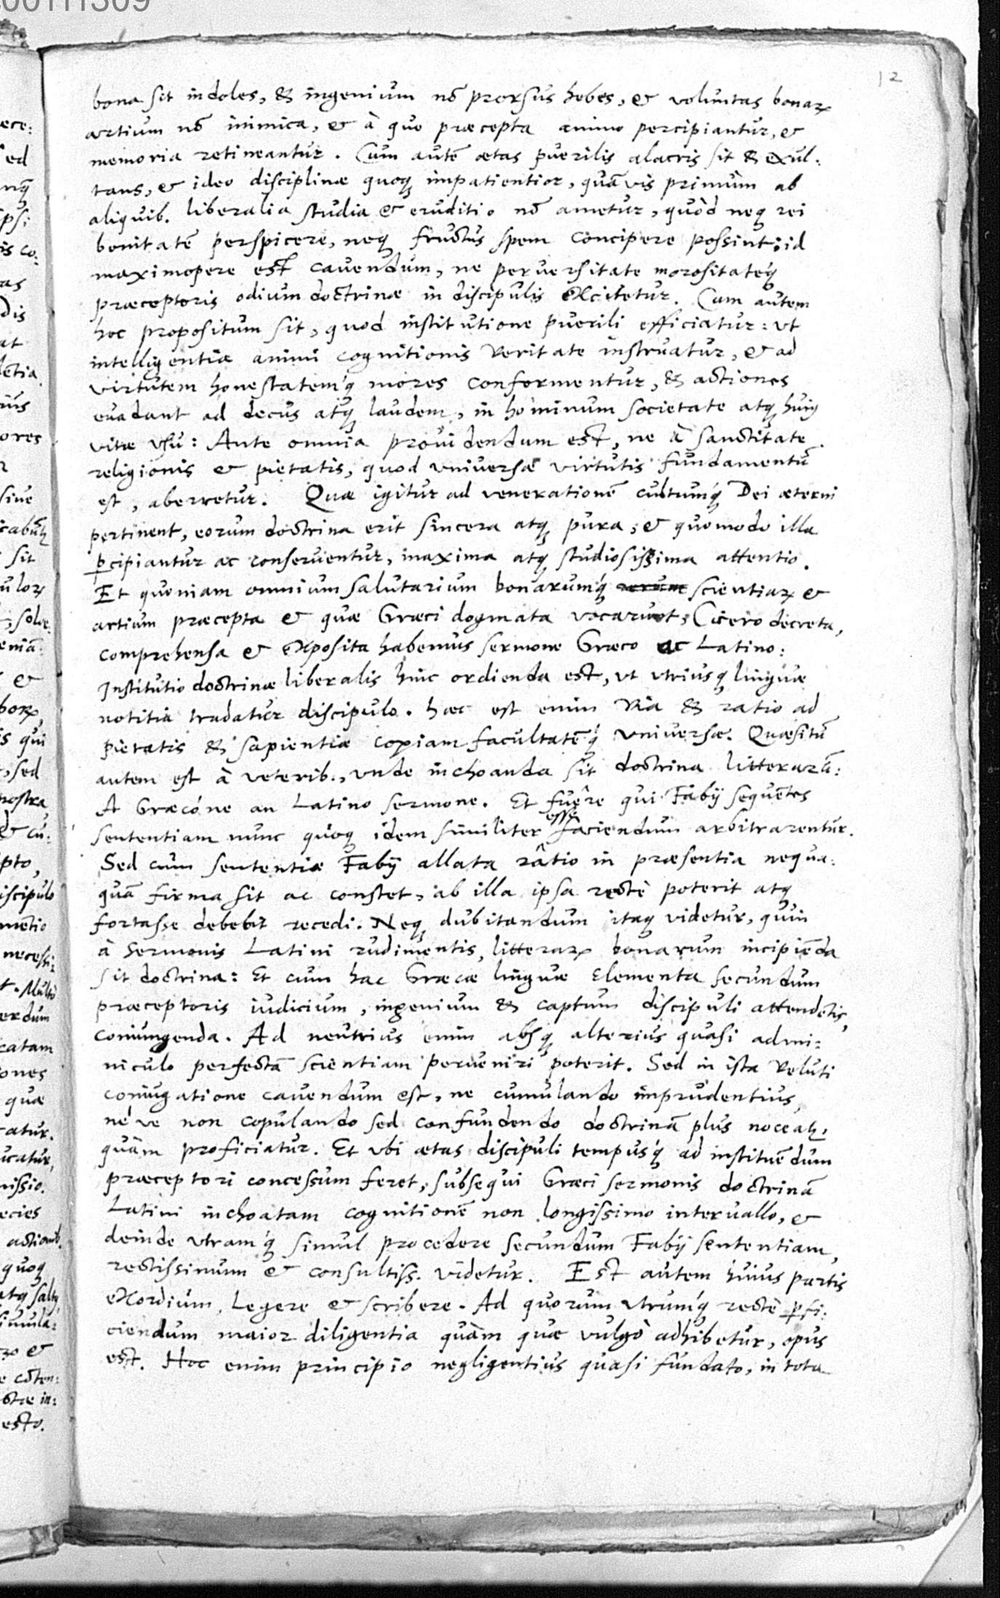 00111309
12
bona sit indoles, & ingenium nõ prorsus hebes, & voluntas bonarꝝ
artium nõ inimica, & à quo præcepta animo percipiantur, &
memoria retineantur. Cum autẽ ætas puerilis alacris sit & exul:
tans, & ideo disciplinæ quoqꝫ impatientior, quãvis primùm ab
aliquib. liberalia studia & eruditio nõ ametur, quòd neqꝫ rei
bonitatẽ perspicere, neqꝫ fructus spem concipere possint: id
maximopere est cavendum, ne perversitate morositateqꝫ
præceptoris odium doctrinæ in discipulis excitetur. Cum autem
hoc propositum sit, quod institutione puerili efficiatur: ut
intelligentia animi cognitionis veritate instruatur, & ad
virtutem honestatemqꝫ mores conformentur, & actiones
evadant ad decus atqꝫ laudem, in hominum societate atqꝫ huiꝰ
vitæ vsu: Ante omnia providendum est, ne à sanctitate
religionis & pietatis, quod vniversæ virtutis fundamentũ
est, aberretur. Quæ igitur ad venerationẽ cultumqꝫ Dei æterni
pertinent, eorum doctrina erit sincera atqꝫ pura, & quomodo illa
ꝑcipiantur ac conserventur, maxima atqꝫ studiosissima attentio.
Et quoniam omnium salutarium bonarumqꝫ scientiarꝝ &
artium præcepta & quæ Græci dogmata vocarunt, Cicero decreta,
comprehensa & exposita habemus sermone Græco ac Latino:
Institutio doctrinæ liberalis hinc ordienda est, vt vtriusqꝫ linguæ
notitia tradatur discipulo. hæc est enim via & ratio ad
pietatis & sapientiæ copiam facultatẽqꝫ vniversæ. Quæsitũ
autem est à veterib., vnde inchoanda sit doctrina litterarũ:
A Græcóne an Latino sermone. Et fuêre qui Fabij sequentes
sententiam nunc quoqꝫ idem similiter esse faciendum arbitrarentur.
Sed cum sententiæ Fabij allata râtio in præsentia nequa:
quã firma sit ac constet, ab illa ipsa rectè poterit atqꝫ
fortasse debebit recedi. Neqꝫ dubitandum itaqꝫ videtur, quin
à Sermonis Latini rudimentis, litterarꝝ bonarum incipiẽda
sit doctrina: Et cum hac Græcæ linguæ Elementa secundum
præceptoris iudicium, ingenium & captum discipuli attendẽtis,
coniungenda. Ad neutrius enim absqꝫ alterius quasi admi:
niculo perfectã scientiam perveniri poterit. Sed in ista veluti
coniugatione cavendum est, ne cumulando imprudentius,
né ve non copulando sed confundendo doctrinã plus noceatꝛ,
quàm proficiatur. Et vbi ætas discipuli tempusqꝫ ad instituẽdum
præceptori concessum feret, subsequi Græci sermonis doctrinã
Latini inchoatam cognitionẽ non longissimo intervallo, &
deinde vtramqꝫ simul procedere secundum Fabij sententiam,
rectissimum & consultiss. videtur. Est autem huius partis
exordium, Legere & scribere. Ad quorum vtrumqꝫ rectè ꝑfi:
ciendum maior diligentia quàm quæ vulgò adhibetur, opus
est. Hoc enim principio negligentius quasi fundato, in tota